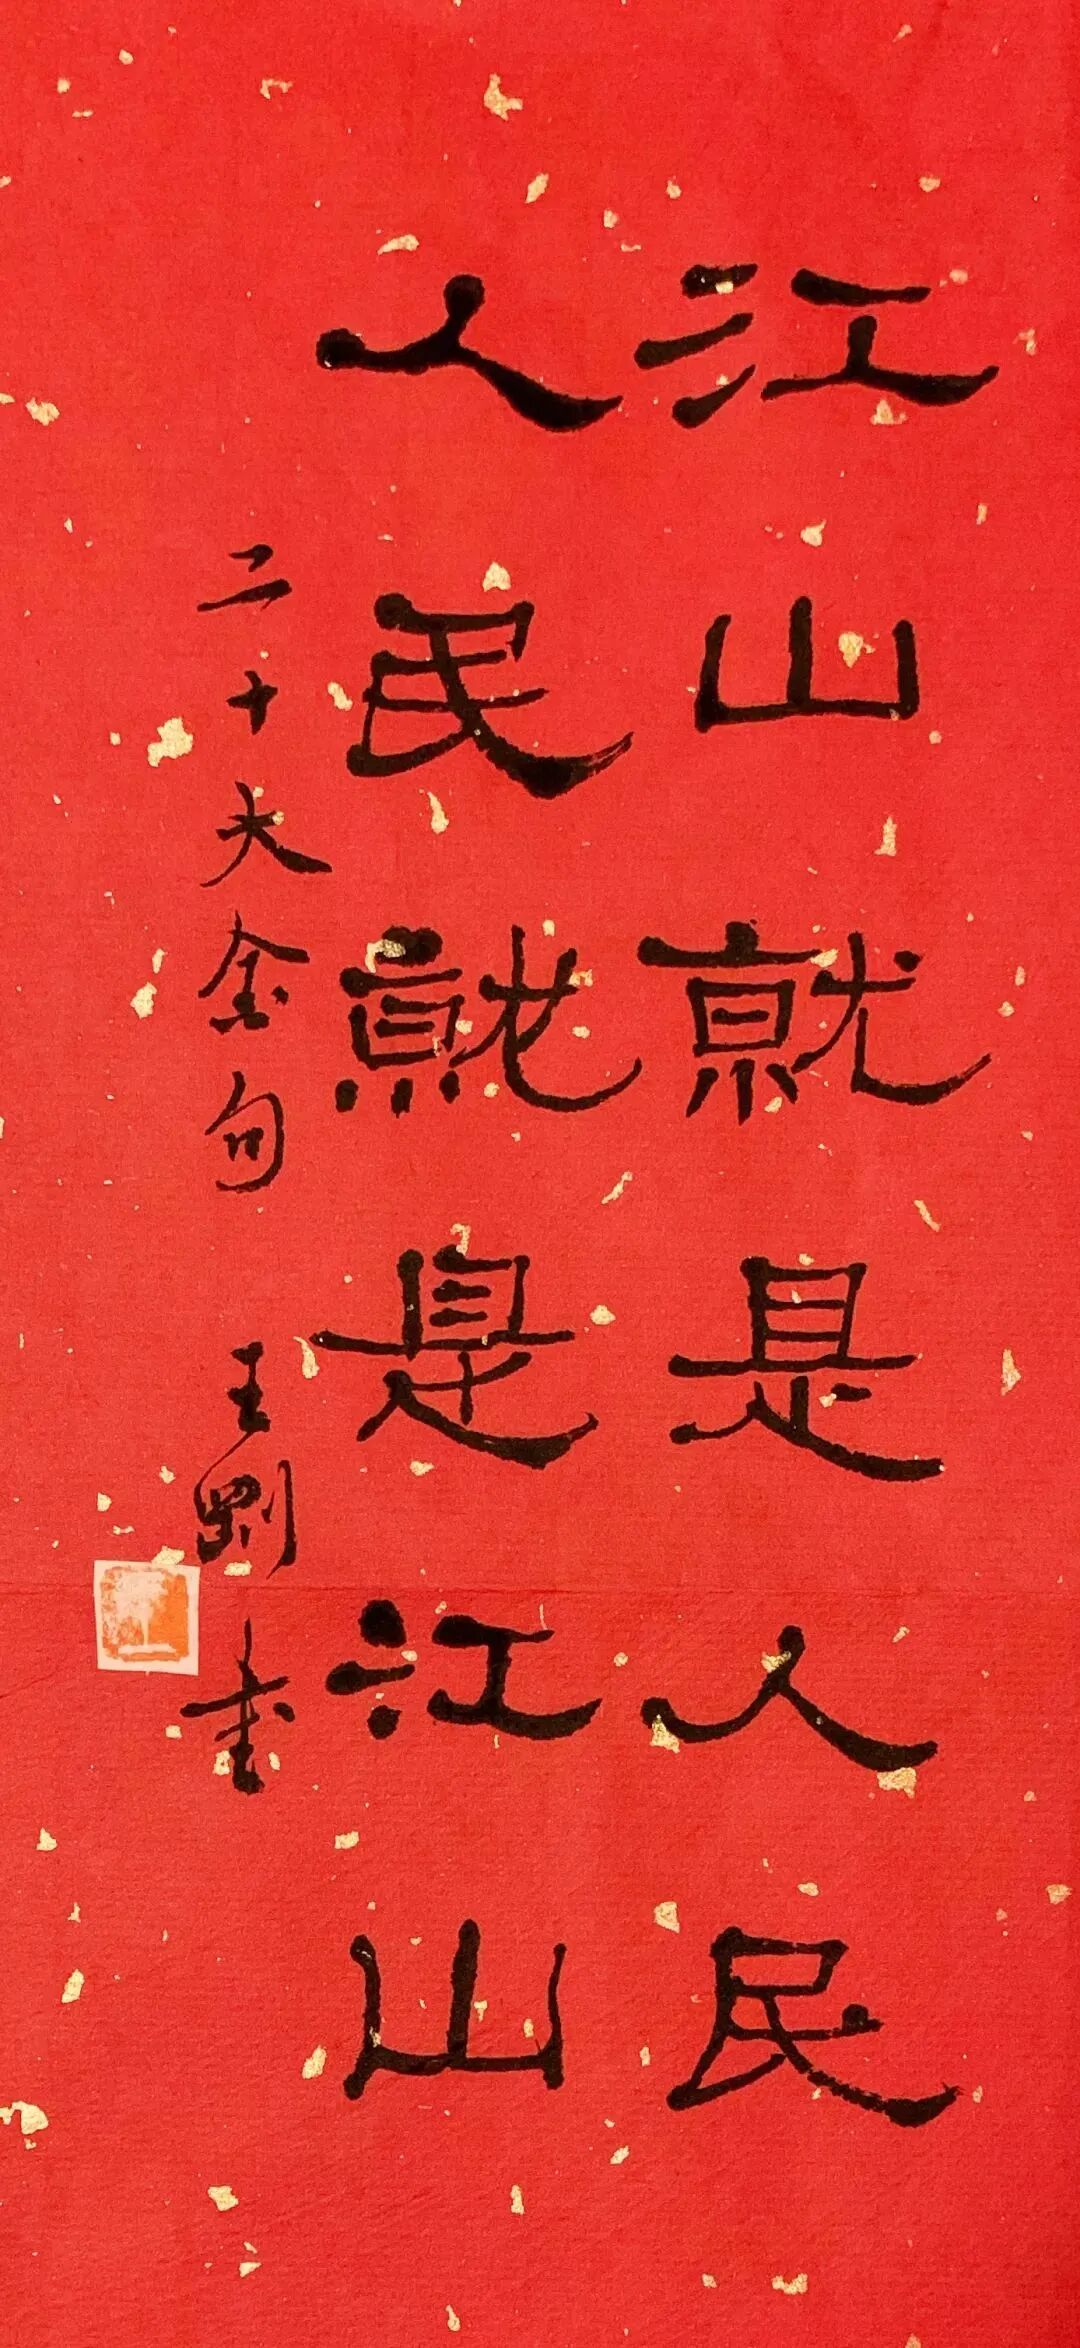 江山就是人民
人民就是江山
二十大金句 王剛書